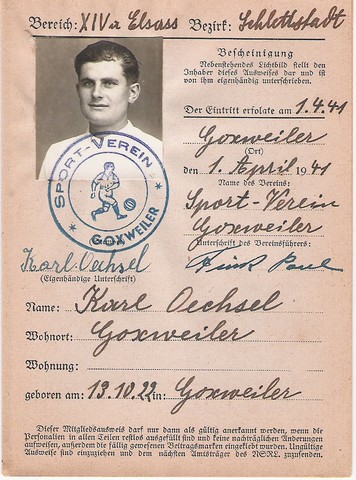 Bereich: XIVa Elsass Bezirk: Schlettstadt
Bescheinigung
Nebenstehendes Lichtbild stellt den
Inhaber dieses Ausweises dar und ist
von ihm eigenhändig unterschrieben.
Der Eintritt erfolgte am 1.4.41
Goxweiler
(Ort)
den 1. April 1941
Name des Vereins:
Sport-Verein
Goxweiler
Unterschrift des Vereinsführers:
Paul
SPORT-VEREIN
GOXWEILER
Karl Oechsel
(Eigenhändige Unterschrift)
Name: Karl Oechsel
Wohnort: Goxweiler
Wohnung:
geboren am: 13.10.22 in: Goxweiler
Dieser Mitgliedsausweis darf nur dann als gültig anerkannt werden, wenn die
Personalien in allen Teilen restlos ausgefüllt sind und keine nachträglichen Änderungen
aufweisen, außerdem die fällig gewesenen Beitragsmarken eingeklebt wurden. Ungültige
Ausweise sind einzuziehen und dem nächsten Amtsträger des NSRL. zuzusenden.